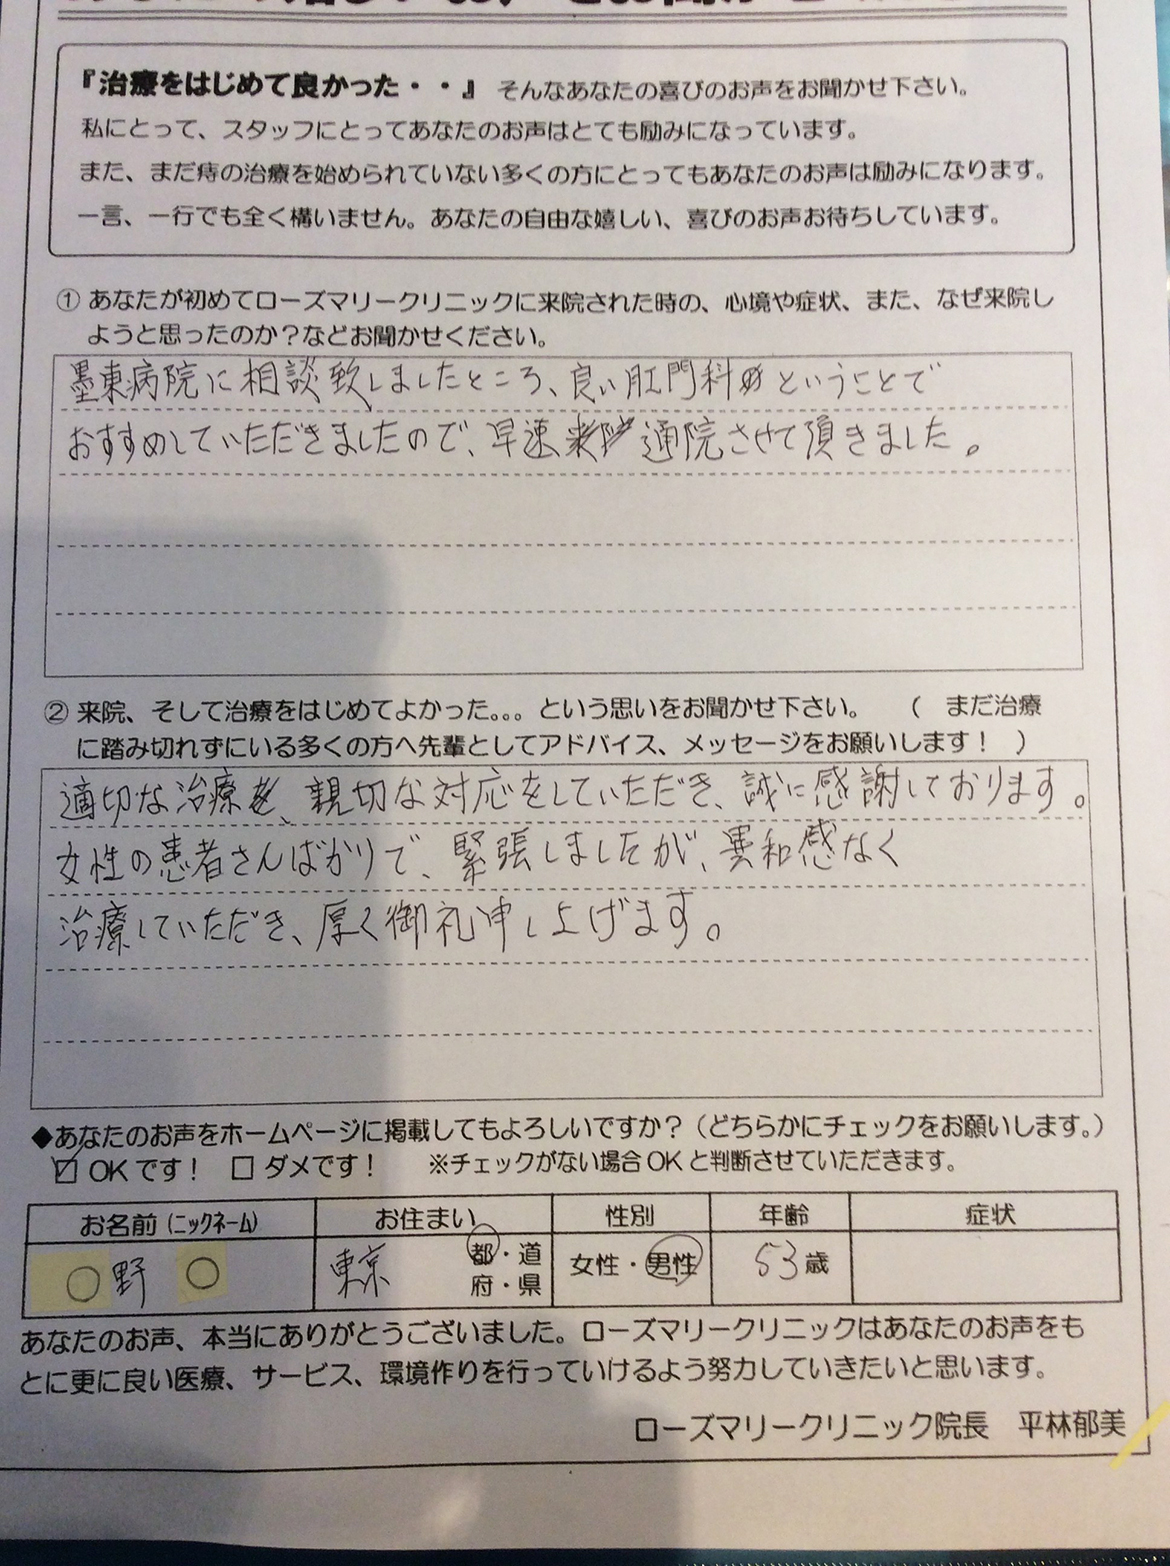 『治療をはじめて良かった・・』そんなあなたの喜びのお声をお聞かせ下さい。
私にとって、スタッフにとってあなたのお声はとても励みになっています。
また、まだ痔の治療を始められていない多くの方にとってもあなたのお声は励みになります。
一言、一行でも全く構いません。あなたの自由な嬉しい、喜びのお声お待ちしています。
① あなたが初めてローズマリークリニックに来院された時の、心境や症状、また、なぜ来院し
ようと思ったのか？などお聞かせください。
墨東病院に相談致しましたところ、良い肛門科ということで
おすすめしていただきましたので、早速通院させて頂きました。
② 来院、そして治療をはじめてよかった。。。という思いをお聞かせ下さい。 （ まだ治療
に踏み切れずにいる多くの方へ先輩としてアドバイス、メッセージをお願いします！ ）
適切な治療を、親切な対応をしていただき、誠に感謝しております。
女性の患者さんばかりで、緊張しましたが、異和感なく
治療していただき、厚く御礼申し上げます。
◆あなたのお声をホームページに掲載してもよろしいですか？（どちらかにチェックをお願いします。）
☑ OKです！ □ ダメです！ ※チェックがない場合OKと判断させていただきます。
お名前（ニックネーム） お住まい 性別 年齢 症状
○野 ○ 東京 都・道 府・県 女性・男性 53歳
あなたのお声、本当にありがとうございました。ローズマリークリニックはあなたのお声をも
とに更に良い医療、サービス、環境作りを行っていけるよう努力していきたいと思います。
ローズマリークリニック院長 平林郁美